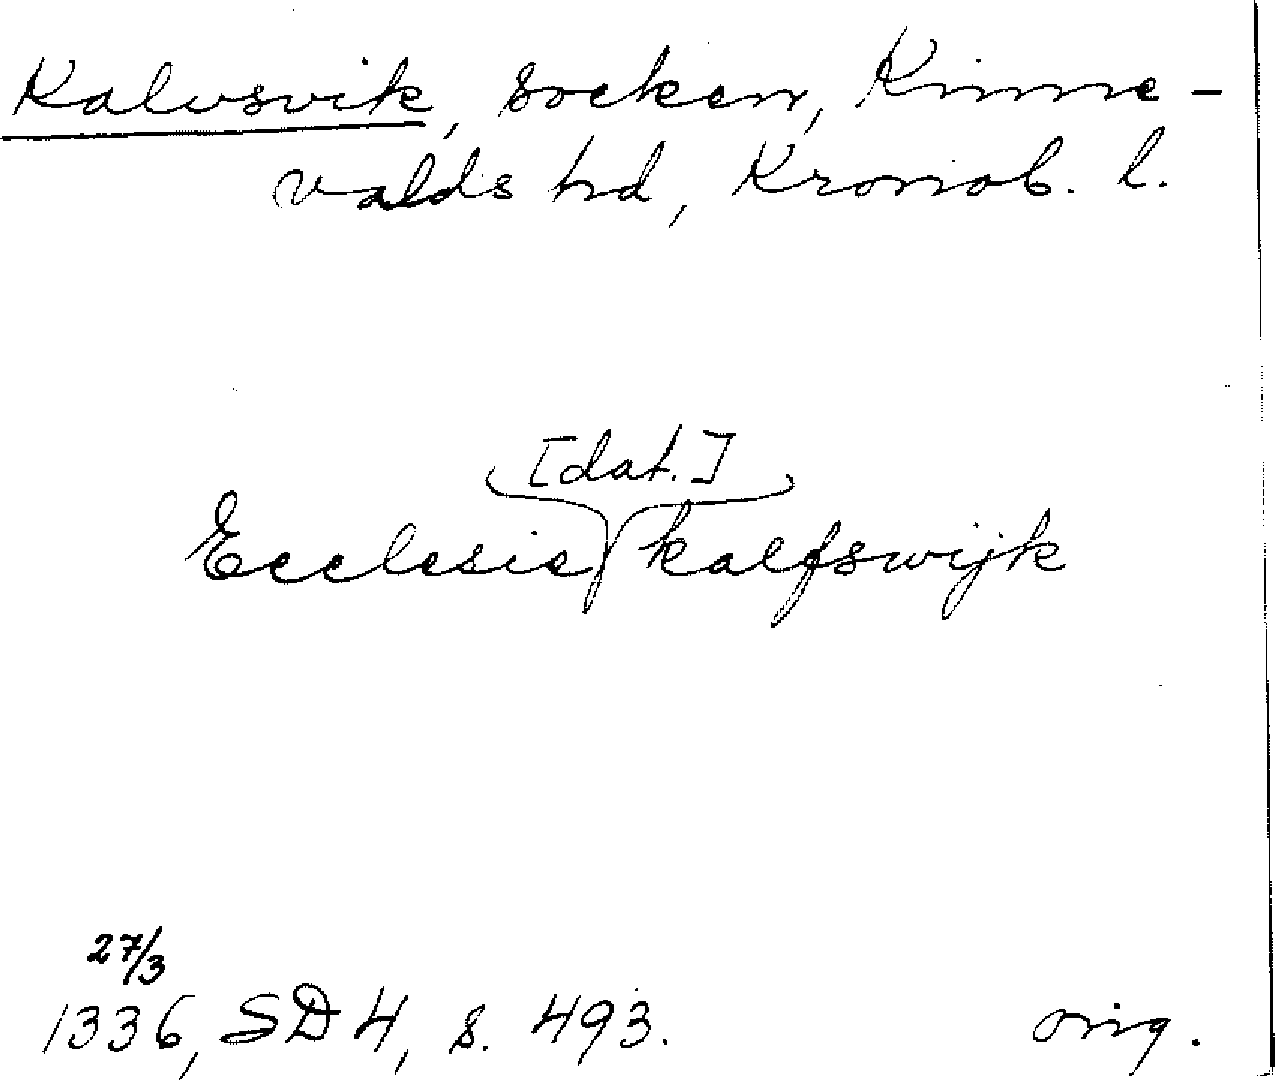 Kalvsvik, socken, Kinne-
valds hd, Kronob. l.
[dat.]
Ecclesie kalfswijk
27/3
1336, SD 4, s. 493. orig.